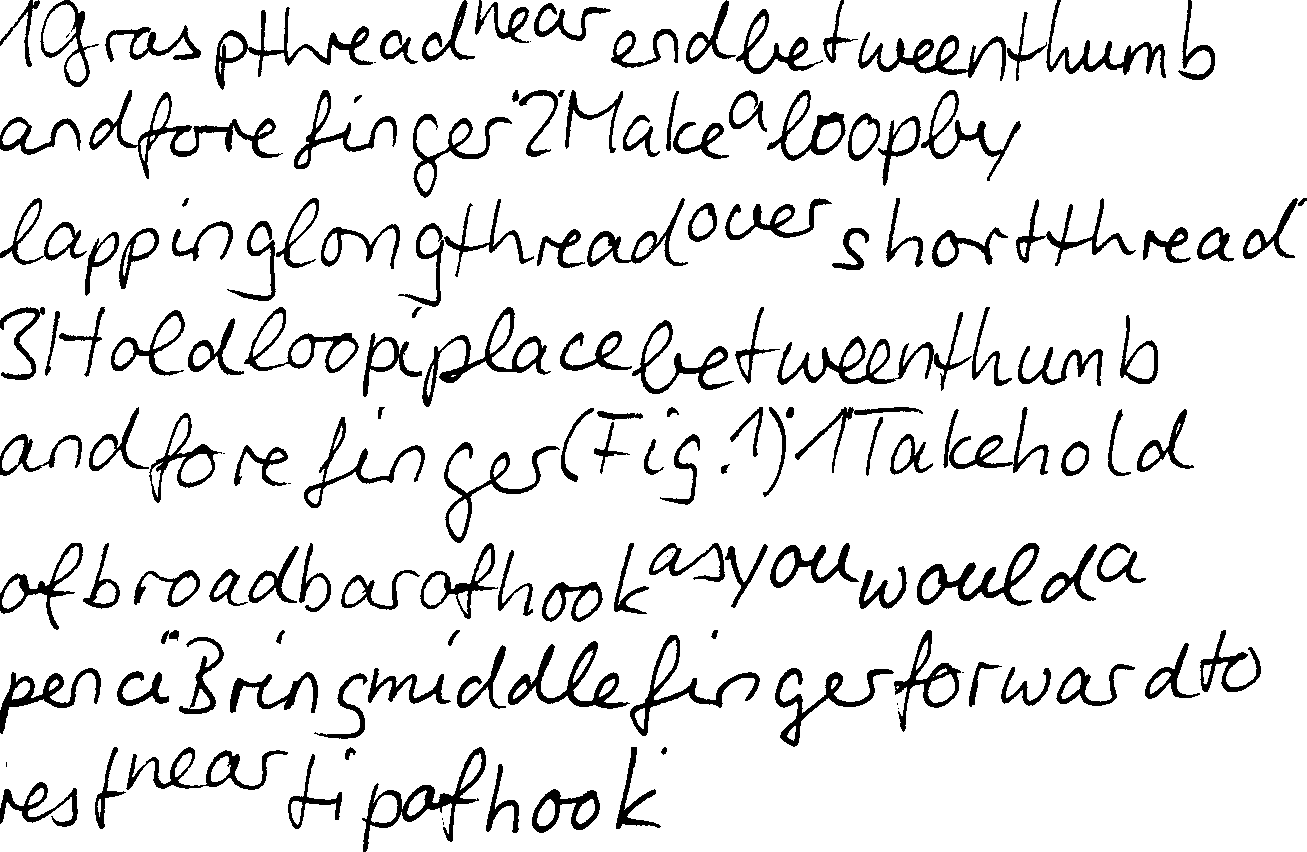 1 Grasp thread near end between thumb
and forefinger 2 Make a loop by
lapping long thread over short thread
3 Hold loop i place between thumb
and forefinger (Fig. 1) 1 Take hold
of broad bar of hook as you would a
penci Bring middle finger forward to
rest near tip of hook